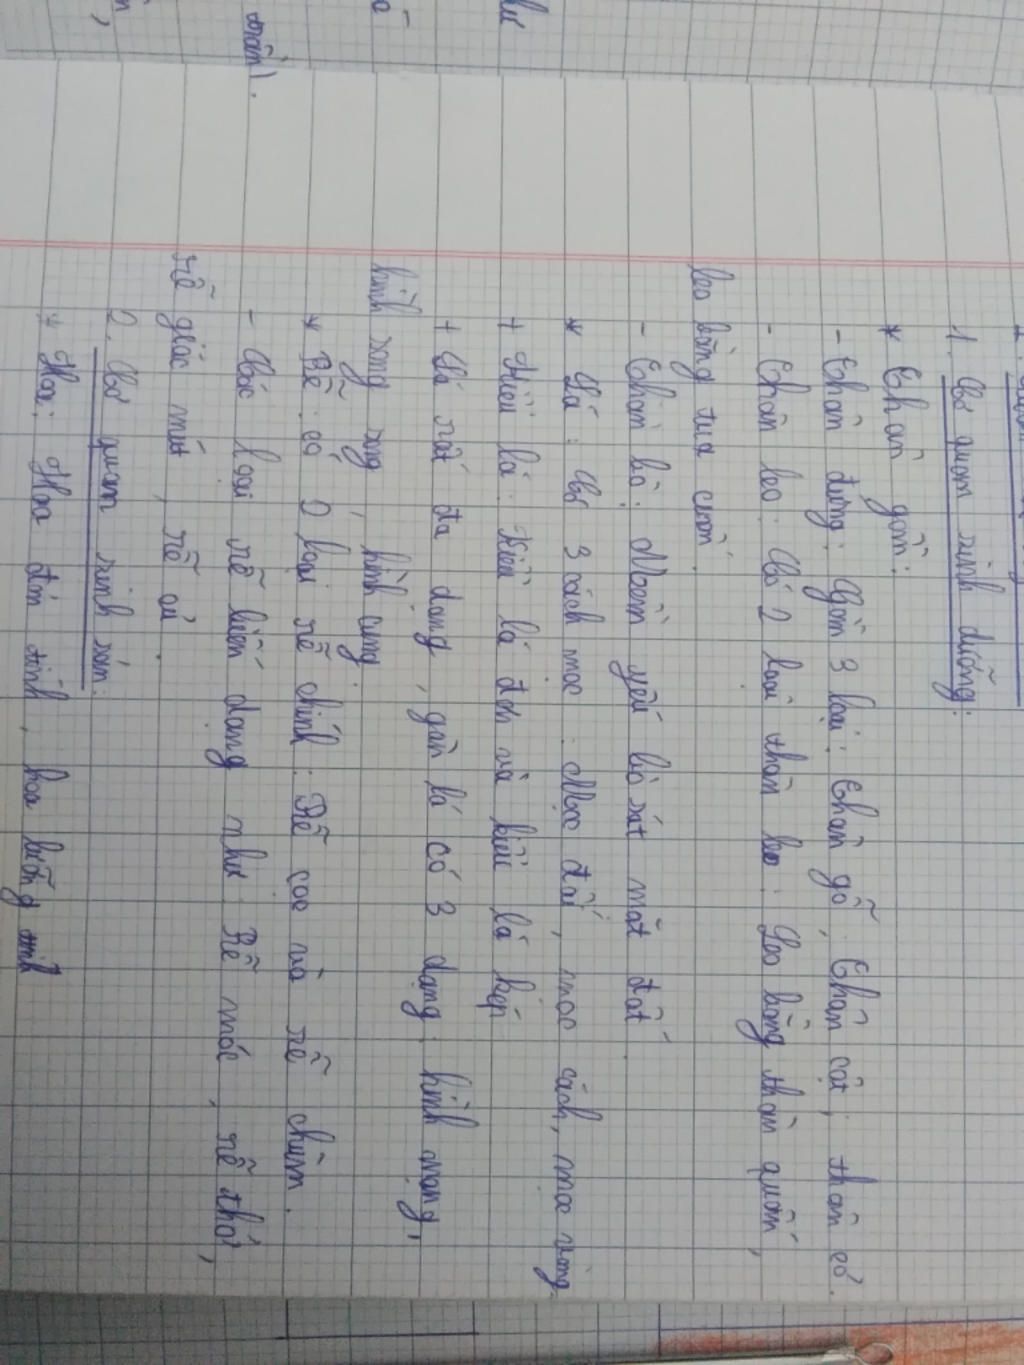 1. Cơ quan sinh dưỡng:
* Thân gồm:
- Thân đứng: Gồm 3 loại: Thân gỗ, Thân cột, thân cỏ.
- Thân leo: Có 2 loại thân leo: Leo bằng thân quấn,
leo bằng tua cuốn.
- Thân bò: Mềm yếu bò sát mặt đất.
* Lá: Có 3 cách mọc: Mọc đối, mọc cách, mọc vòng.
+ Kiểu lá: Kiểu lá đơn và kiểu lá kép
+ Lá rất đa dạng, gân lá có 3 dạng: hình mạng,
hình song song, hình cung.
* Rễ: có 2 loại rễ chính: Rễ cọc và rễ chùm.
- Các loại rễ biến dạng như: Rễ móc, rễ thở,
rễ giác mút, rễ củ.
2. Cơ quan sinh sản:
* Hoa: Hoa đơn tính, hoa lưỡng tính